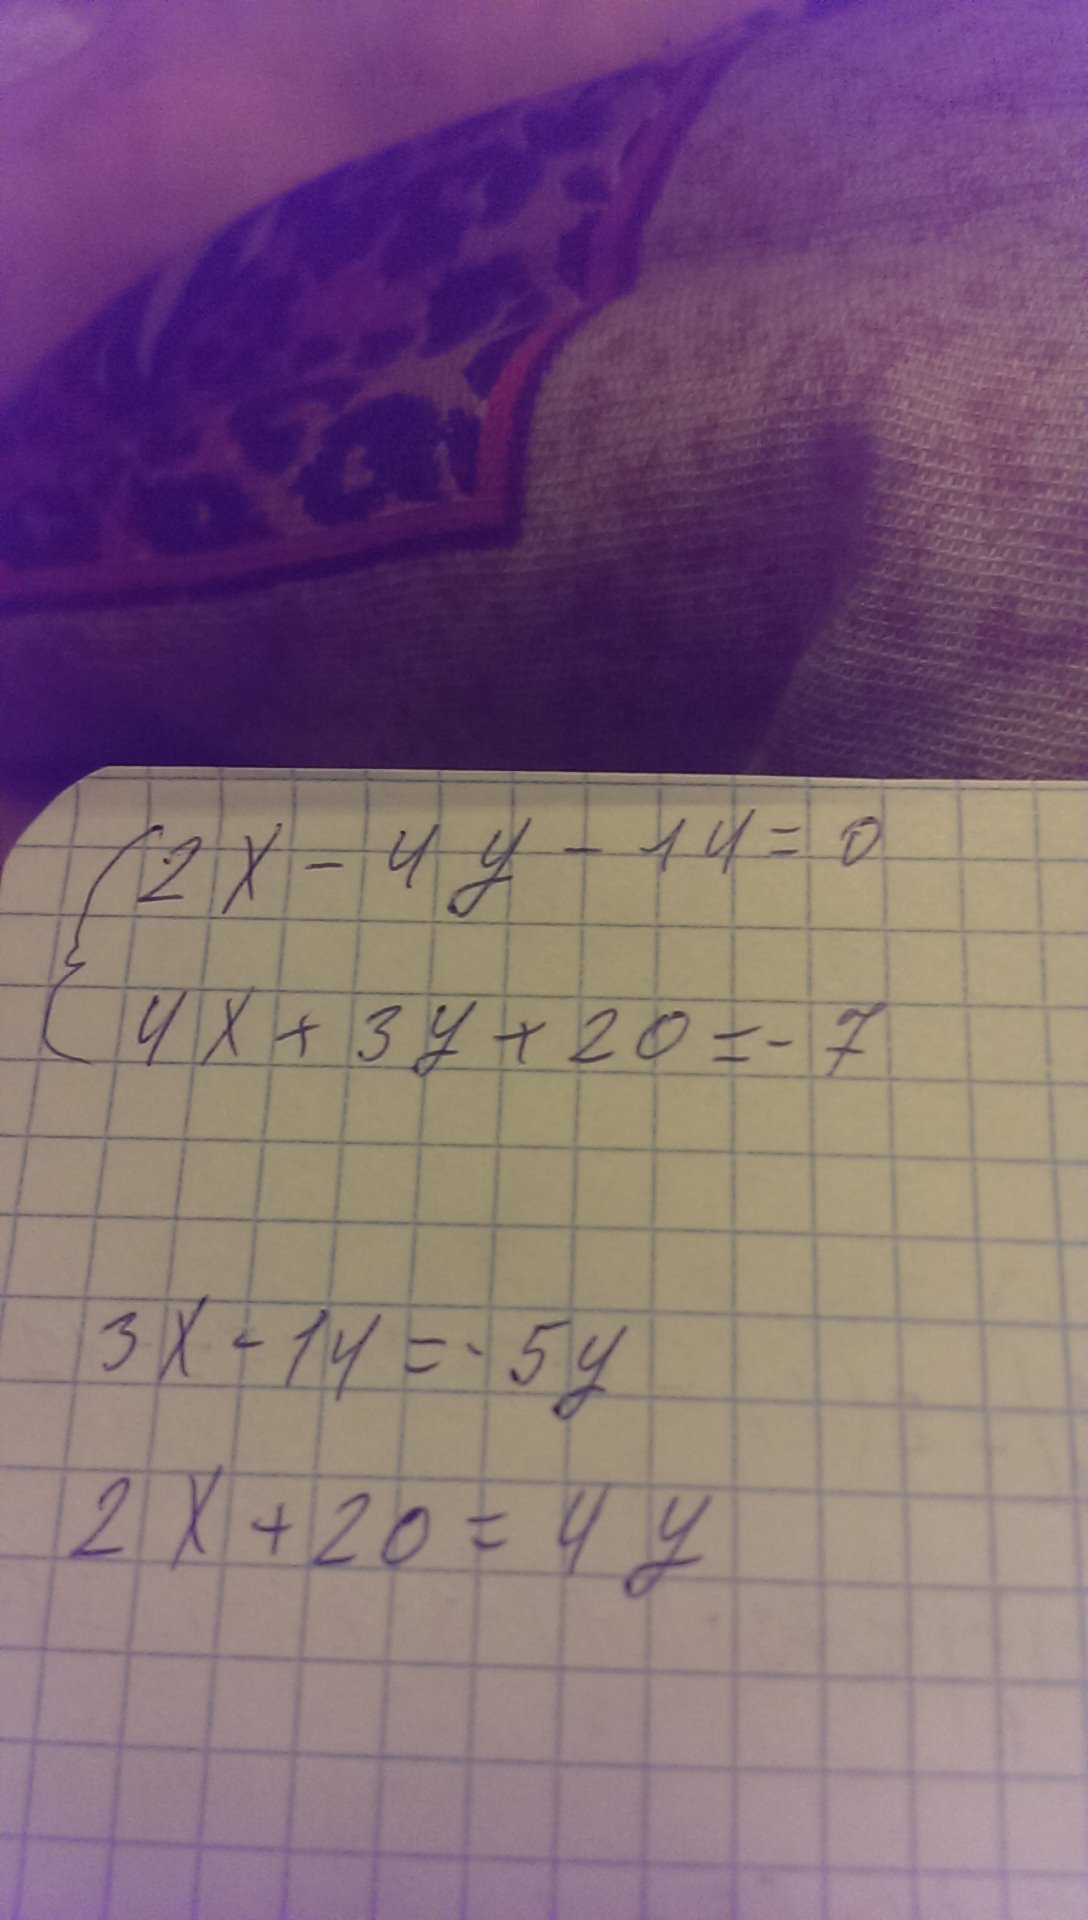 2x - 4y - 14 = 0
4x + 3y + 20 = - 7
3x - 14 = - 5y
2x + 20 = 4y